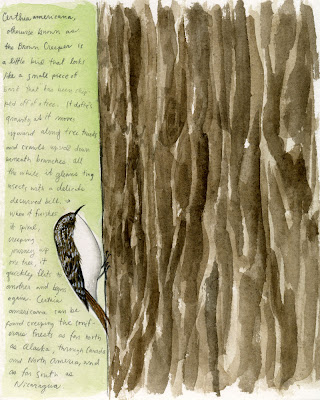 Certhia americana,
otherwise known as
the Brown Creeper is
a little bird that looks
like a small piece of
bark that has been chip
ped off of a tree. It defies
gravity as it moves
upward along tree trunks
and crawls upside down
beneath branches all
the while it gleans tiny
insects with a delicate
decurved bill.
when it finishes
its spiral,
creeping
journey up
one tree, it
quickly flits to
another and begins
again. Certhia
americana can be
found creeping the conif
erous forests as far north
as Alaska, through Canada
and North America, and
as far south as
Nicaragua